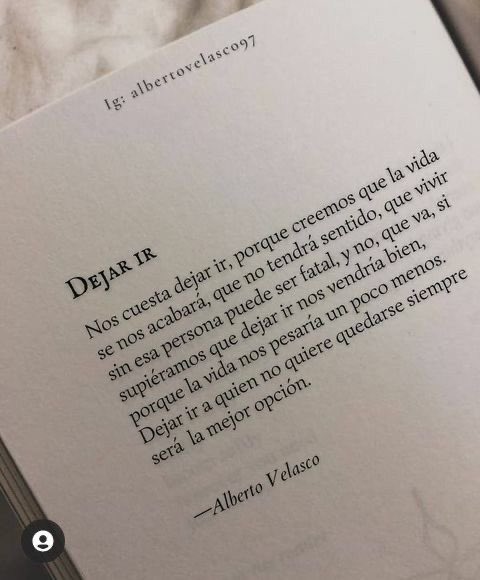 Ig: albertovelasco97
DEJAR IR
Nos cuesta dejar ir, porque creemos que la vida
se nos acabará, que no tendrá sentido, que vivir
sin esa persona puede ser fatal, y no, que va, si
supiéramos que dejar ir nos vendría bien,
porque la vida nos pesaría un poco menos.
Dejar ir a quien no quiere quedarse siempre
será la mejor opción.
—Alberto Velasco